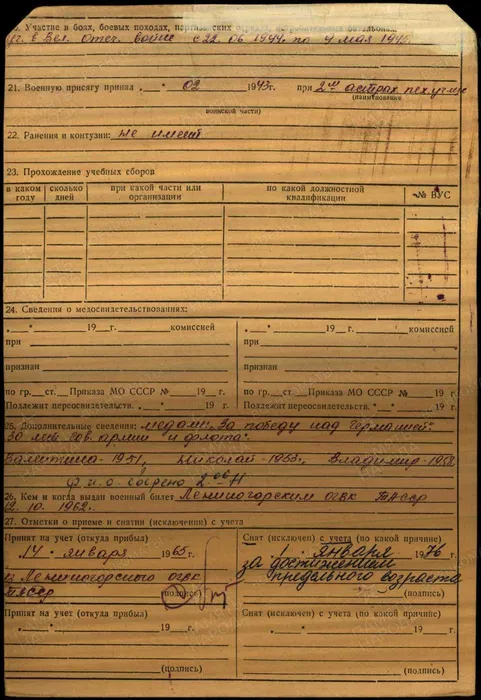 20. Участие в боях, боевых походах, партизанских отрядах и истребительных батальонах
в Вел. Отеч. войне с 22.06.1944 по 9 мая 1945.
21. Военную присягу принял „ “ 02 1943 г. при 2м астрах. пех. уч-ще
(наименование
воинской части)
22. Ранения и контузии: не имеет
23. Прохождение учебных сборов
в каком году сколько дней при какой части или организации по какой должностной квалификации № ВУС
24. Сведения о медосвидетельствованиях:
„ “ 19 г. комиссией „ “ 19 г. комиссией
при при
признан признан
по гр. ст. Приказа МО СССР № 19 г. по гр. ст. Приказа МО СССР № 19 г.
Подлежит переосвидетельств. „ “ 19 г. Подлежит переосвидетельств. „ “ 19 г.
25. Дополнительные сведения: медали „За победу над Германией“
30 лет Сов. армии и флота.
Валентина-1951, Николай-1953, Владимир-1958
Ф.и.о. сверено
26. Кем и когда выдан военный билет Лениногорским огвк ТАССР
12.10.1962.
27. Отметки о приеме и снятии (исключении) с учета
Принят на учет (откуда прибыл) Снят (исключен) с учета (по какой причине)
„14“ января 1965 г. „1“ января 1976 г.
из Лениногорского огвк за достижением
ТАССР (подпись) предельного возраста
(подпись)
Принят на учет (откуда прибыл) Снят (исключен) с учета (по какой причине)
„ “ 19 г. „ “ 19 г.
(подпись) (подпись)